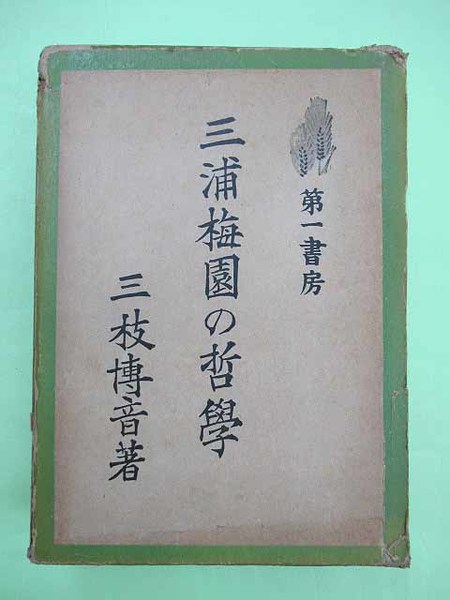 第一書房
三浦梅園の哲學
三枝博音著